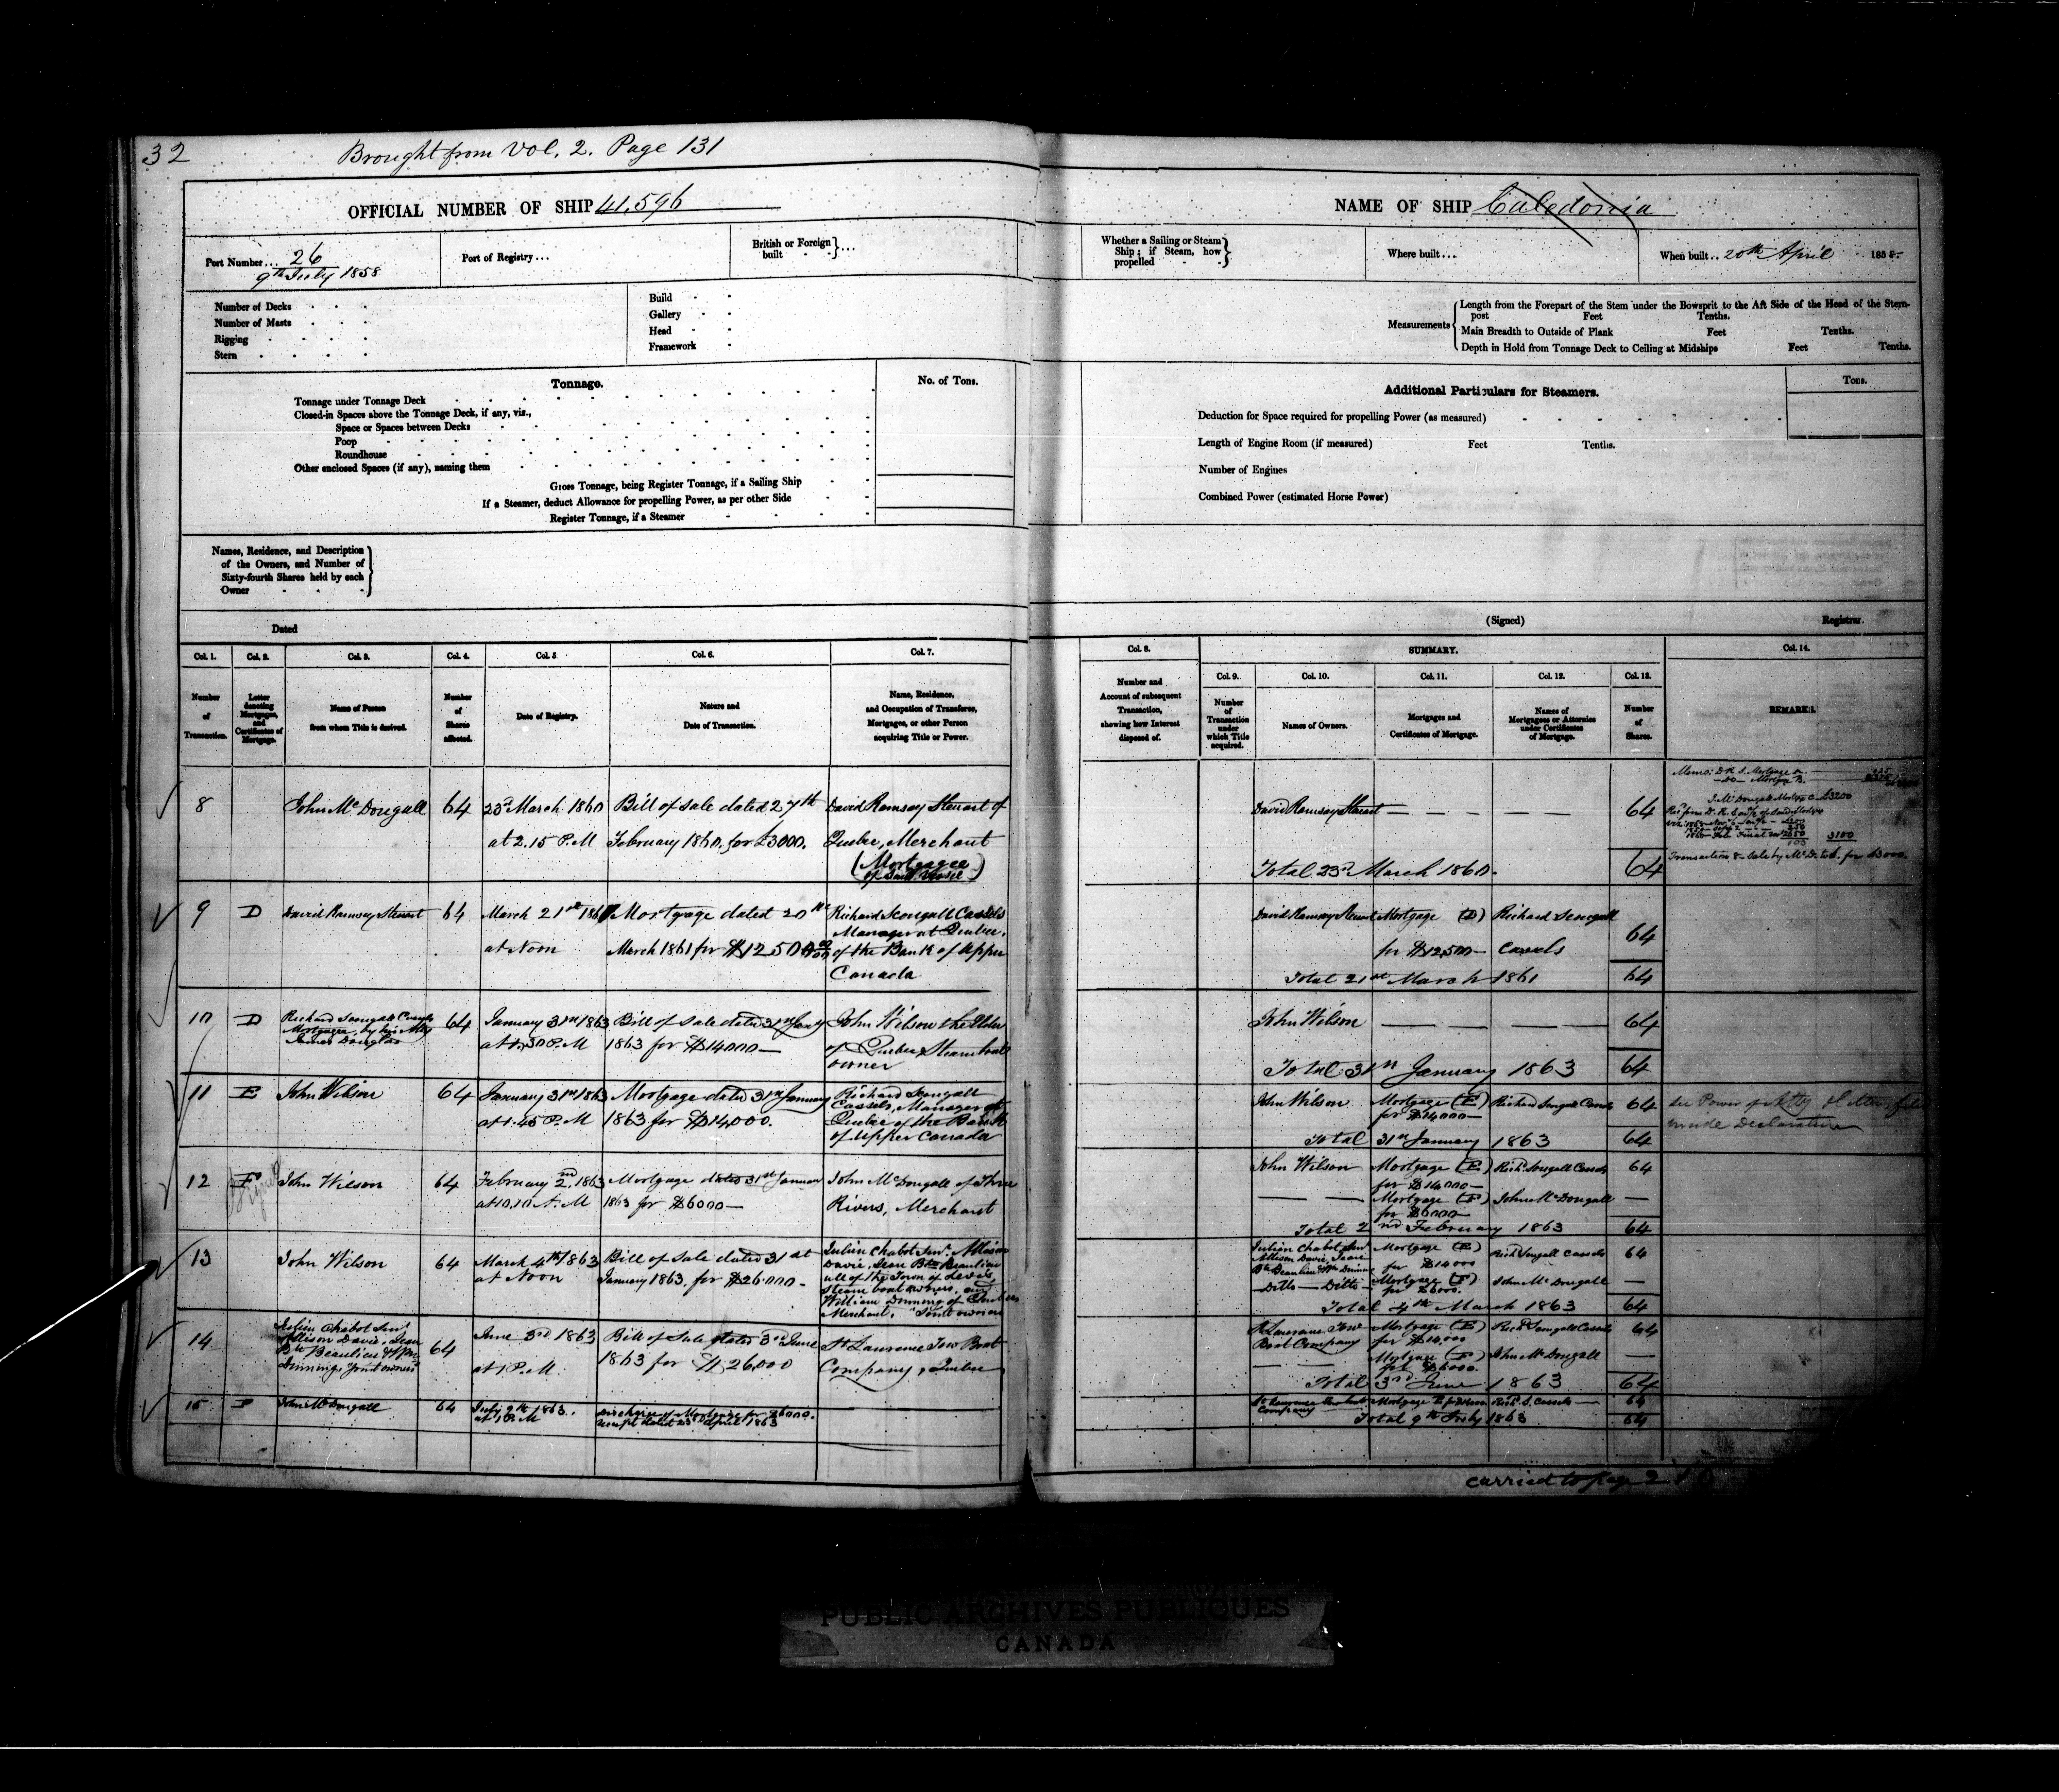 32
Brought from Vol. 2. Page 131
OFFICIAL NUMBER OF SHIP 41,596
Port Number... 26
9th July 1858
Port of Registry...
British or Foreign built - - } ...
Number of Decks
Number of Masts
Rigging
Stern
Build
Gallery
Head
Framework
Tonnage.
No. of Tons.
Tonnage under Tonnage Deck
Closed-in Spaces above the Tonnage Deck, if any, viz.,
Space or Spaces between Decks
Poop
Roundhouse
Other enclosed Spaces (if any), naming them
Gross Tonnage, being Register Tonnage, if a Sailing Ship
If a Steamer, deduct Allowance for propelling Power, as per other Side
Register Tonnage, if a Steamer
Names, Residence, and Description
of the Owners, and Number of
Sixty-fourth Shares held by each
Owner
Dated
Col. 1.
Number
of
Transaction.
Col. 2.
Letter
denoting
Mortgages,
and
Certificates of
Mortgage.
Col. 3.
Name of Person
from whom Title is derived.
Col. 4.
Number
of
Shares
affected.
Col. 5.
Date of Registry.
Col. 6.
Nature and
Date of Transaction.
Col. 7.
Name, Residence,
and Occupation of Transferee,
Mortgagee, or other Person
acquiring Title or Power.
8
John McDougall
64
23rd March 1860
at 2.15 P.M
Bill of sale dated 27th
February 1860, for £3000.
David Ramsay Stewart of
Quebec, Merchant
(Mortgagee
of said Vessel)
9
D
David Ramsay Stewart
64
March 21st 1861
at Noon
Mortgage dated 20th
March 1861 for $12,500
Richard Scougall Cassels
Manager at Quebec,
of the Bank of Upper
Canada
10
D
Richard Scougall Cassels
Mortgagee, by his Atty
James Douglas
64
January 31st 1863
at 1.30 P.M
Bill of Sale dated 31st Jany
1863 for $14000—
John Wilson the Elder
of Quebec Steamboat
owner
11
E
John Wilson
64
January 31st 1863
at 1.45 P.M
Mortgage dated 31st January
1863 for $14,000.
Richard Scougall
Cassels, Manager at
Quebec of the Bank
of Upper Canada
12
F
John Wilson
64
February 2nd, 1863
at 10.10 A.M
Mortgage dated 31st January
1863 for $6000—
John McDougall of Three
Rivers, Merchant
13
John Wilson
64
March 4th 1863
at Noon
Bill of Sale dated 31st
January 1863, for $26.000-
Julien Chabot Senr. Allison
Davie, Jean Bte Beaulieu
all of the Town of Levis
Steam boat owners, and
William Dinning of Quebec
Merchant, Joint owners
14
Julien Chabot Senr
Allison Davie, Jean
Bte Beaulieu & Wm
Dinning, Joint owners
64
June 3rd 1863
at 1 P.M.
Bill of Sale dated 3rd June
1863 for $26,000
St Lawrence Tow Boat
Company, Quebec
15
F
John McDougall
64
July 9th 1863.
at 1 P.M
Discharge of Mortgage for $6000.
receipt dated 23d April 1863
NAME OF SHIP Caledonia
Whether a Sailing or Steam
Ship; if Steam, how
propelled
Where built...
When built.. 20th April 1858-
Measurements
Length from the Forepart of the Stem under the Bowsprit to the Aft Side of the Head of the Stern-
post Feet Tenths.
Main Breadth to Outside of Plank Feet Tenths.
Depth in Hold from Tonnage Deck to Ceiling at Midships Feet Tenths.
Additional Particulars for Steamers.
Tons.
Deduction for Space required for propelling Power (as measured)
Length of Engine Room (if measured) Feet Tenths.
Number of Engines
Combined Power (estimated Horse Power)
(Signed) Registrar.
Col. 8.
Number and
Account of subsequent
Transaction,
showing how Interest
disposed of.
SUMMARY.
Col. 9.
Number
of
Transaction
under
which Title
acquired.
Col. 10.
Names of Owners.
Col. 11.
Mortgages and
Certificates of Mortgage.
Col. 12.
Names of
Mortgagees or Attornies
under Certificates
of Mortgage.
Col. 13.
Number
of
Shares.
Col. 14.
REMARKS.
David Ramsay Stewart — — — — 64
Total 23rd March 1860. 64
Memo: D.R.S. Mortgage
Do Mortgage B.
J. McDougall Mortge C £3200
3100
Transaction 8 - Sale by McD. to S. for £3000.
David Ramsay Stewart
Mortgage (D)
for $12,500—
Richard Scougall
Cassels
64
Total 21st March 1861 64
John Wilson — — — — 64
Total 31st January 1863 64
John Wilson
Mortgage (E)
for $14000—
Richard Scougall Cassels
64
Total 31st January 1863 64
See Power of Atty
inside Declaration
John Wilson
Mortgage (E)
for $14000—
Richd Scougall Cassels
64
Mortgage (F)
for $6000—
John McDougall —
Total 2nd February 1863 64
Julien Chabot Senr
Allison Davie, Jean
Bte Beaulieu & Wm Dinning
Mortgage (E)
for $14000
Richd Scougall Cassels
64
— Ditto — Ditto —
Mortgage (F)
for $6000.
John McDougall —
Total 4th March 1863 64
St Lawrence Tow
Boat Company
Mortgage (E)
for $14,000
Richd Scougall Cassels
64
Mortgage (F)
for $6000.
John McDougall —
Total 3rd June 1863 64
St Lawrence Tow Boat
Company
Mortgage E for $14000 Richd S. Cassels — 64
Total 9th July 1863 64
carried to page
PUBLIC ARCHIVES PUBLIQUES
CANADA